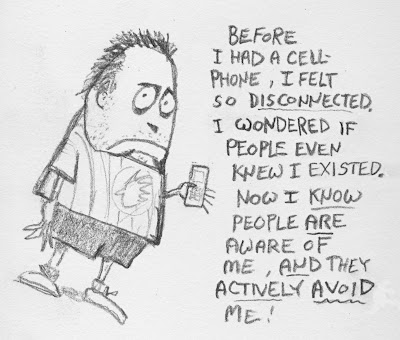 BEFORE
I HAD A CELL-
PHONE, I FELT
SO DISCONNECTED.
I WONDERED IF
PEOPLE EVEN
KNEW I EXISTED.
NOW I KNOW
PEOPLE ARE
AWARE OF
ME, AND THEY
ACTIVELY AVOID
ME!